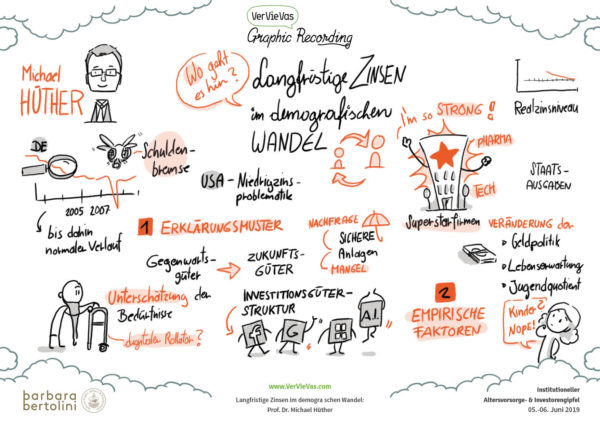 VerVieVas
Graphic Recording
Michael
HÜTHER
Wo geht
es hin?
Langfristige ZINSEN
im demografischen
WANDEL
Realzinsniveau
I'm so STRONG!
PHARMA
TECH
Superstarfirmen
DE
2005 2007
bis dahin
normaler Verlauf
Schulden-
bremse
USA - Niedrigzins-
problematik
STAATS-
AUSGABEN
1 ERKLÄRUNGSMUSTER
Gegenwarts-
güter
ZUKUNFTS-
GÜTER
NACHFRAGE
SICHERE
Anlagen
MANGEL
VERÄNDERUNG der
Geldpolitik
Lebenserwartung
Jugendquotient
Unterschätzung der
Bedürfnisse
digitaler Rollator?
INVESTITIONSGÜTER-
STRUKTUR
f G A.I.
2
EMPIRISCHE
FAKTOREN
Kinder?
NOPE!
barbara
bertolini
www.VerVieVas.com
Langfristige Zinsen im demogra schen Wandel:
Prof. Dr. Michael Hüther
Institutioneller
Altersvorsorge- & Investorengipfel
05.-06. Juni 2019